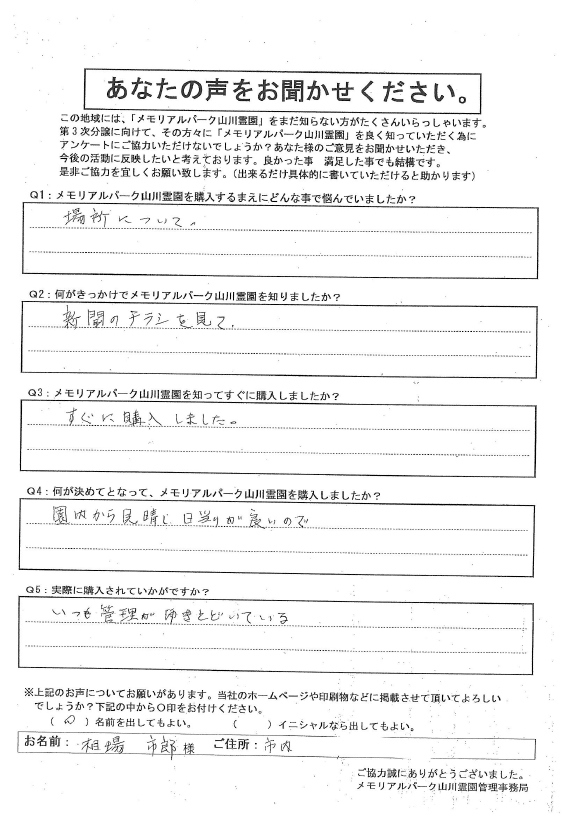 あなたの声をお聞かせください。
この地域には、「メモリアルパーク山川霊園」をまだ知らない方がたくさんいらっしゃいます。
第３次分譲に向けて、その方々に「メモリアルパーク山川霊園」を良く知っていただく為に
アンケートにご協力いただけないでしょうか？あなた様のご意見をお聞かせいただき、
今後の活動に反映したいと考えております。良かった事　満足した事でも結構です。
是非ご協力を宜しくお願い致します。（出来るだけ具体的に書いていただけると助かります）
Ｑ１：メモリアルパーク山川霊園を購入するまえにどんな事で悩んでいましたか？
場所について。
Ｑ２：何がきっかけでメモリアルパーク山川霊園を知りましたか？
新聞のチラシを見て。
Ｑ３：メモリアルパーク山川霊園を知ってすぐに購入しましたか？
すぐに購入しました。
Ｑ４：何が決めてとなって、メモリアルパーク山川霊園を購入しましたか？
園内から見晴と日当りが良いので
Ｑ５：実際に購入されていかがですか？
いつも管理がゆきとどいている
※上記のお声についてお願いがあります。当社のホームページや印刷物などに掲載させて頂いてよろしい
でしょうか？下記の中から〇印をお付けください。
（〇）名前を出してもよい。　（　）イニシャルなら出してもよい。
お名前：相場 市郎 様　ご住所：市内
ご協力誠にありがとうございました。
メモリアルパーク山川霊園管理事務局